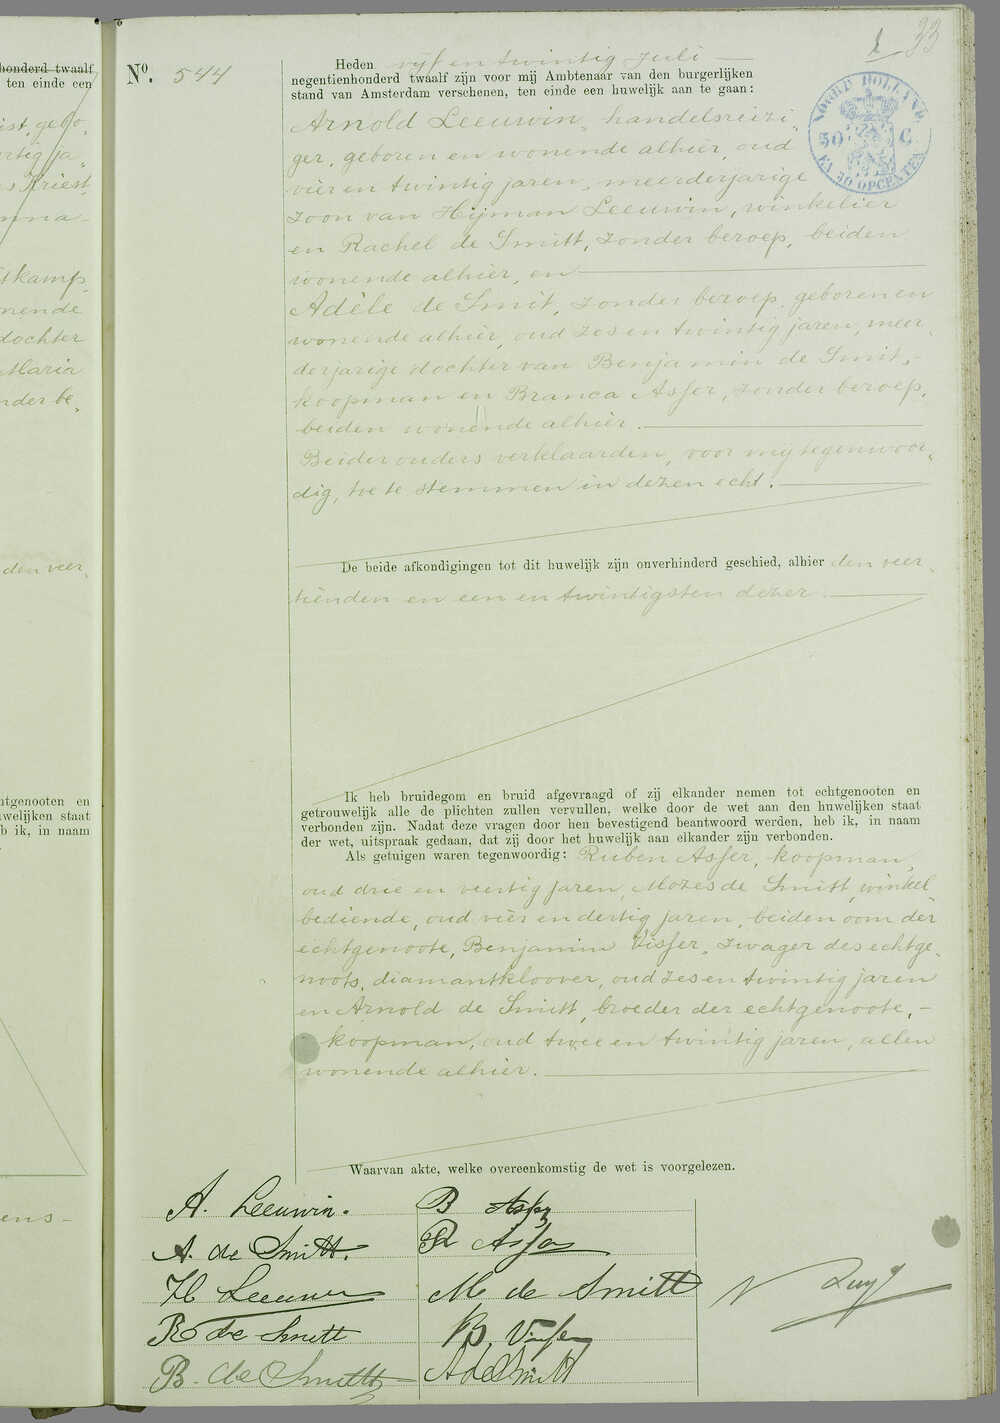 honderd twaalf
ten einde een
ist, gebo,
ertig ja,
s Kriest,
nna-
tkamp,
nende
dochter
Maria
nder be,
den veer,
htgenooten en
uwelijken staat
b ik, in naam
ens-
33
NOORD HOLLAND
50 C.
EN 30 OPCENTEN
Nº. 544
Heden vijf en twintig Juli
negentienhonderd twaalf zijn voor mij Ambtenaar van den burgerlijken
stand van Amsterdam verschenen, ten einde een huwelijk aan te gaan:
Arnold Leeuwin, handelsreizi,
ger, geboren en wonende alhier, oud
vier en twintig jaren, meerderjarige
zoon van Hijman Leeuwin, winkelier
en Rachel de Smitt, zonder beroep, beiden
wonende alhier, en
Adèle de Smit, zonder beroep, geboren en
wonende alhier, oud zes en twintig jaren, meer,
derjarige dochter van Benjamin de Smit,-
koopman en Branca Asser, zonder beroep,
beiden wonende alhier.
Beider ouders verklaarden, voor mij tegenwoor,
dig, toe te stemmen in dezen echt.
De beide afkondigingen tot dit huwelijk zijn onverhinderd geschied, alhier den veer,
tienden en een en twintigsten dezer.
Ik heb bruidegom en bruid afgevraagd of zij elkander nemen tot echtgenooten en
getrouwelijk alle de plichten zullen vervullen, welke door de wet aan den huwelijken staat
verbonden zijn. Nadat deze vragen door hen bevestigend beantwoord werden, heb ik, in naam
der wet, uitspraak gedaan, dat zij door het huwelijk aan elkander zijn verbonden.
Als getuigen waren tegenwoordig: Ruben Asser, koopman,
oud drie en veertig jaren, Mozes de Smitt, winkel
bediende, oud vier en dertig jaren, beiden oom der
echtgenoote, Benjamin Visser, zwager des echtge,
noots, diamantkloover, oud zes en twintig jaren
en Arnold de Smitt, broeder der echtgenoote,-
koopman, oud twee en twintig jaren, allen
wonende alhier.
Waarvan akte, welke overeenkomstig de wet is voorgelezen.
A. Leeuwin.
A. de Smitt.
H Leeuwin
R de Smitt
B. de Smitt
B Asser
R Asser
M de Smitt
B. Visser
A de Smitt